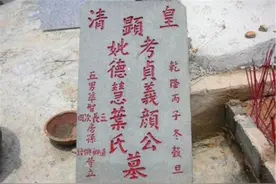 皇清
乾隆丙子冬穀旦
顯
考貞義顏公
妣德慧葉氏
墓
五男
長房孫
立